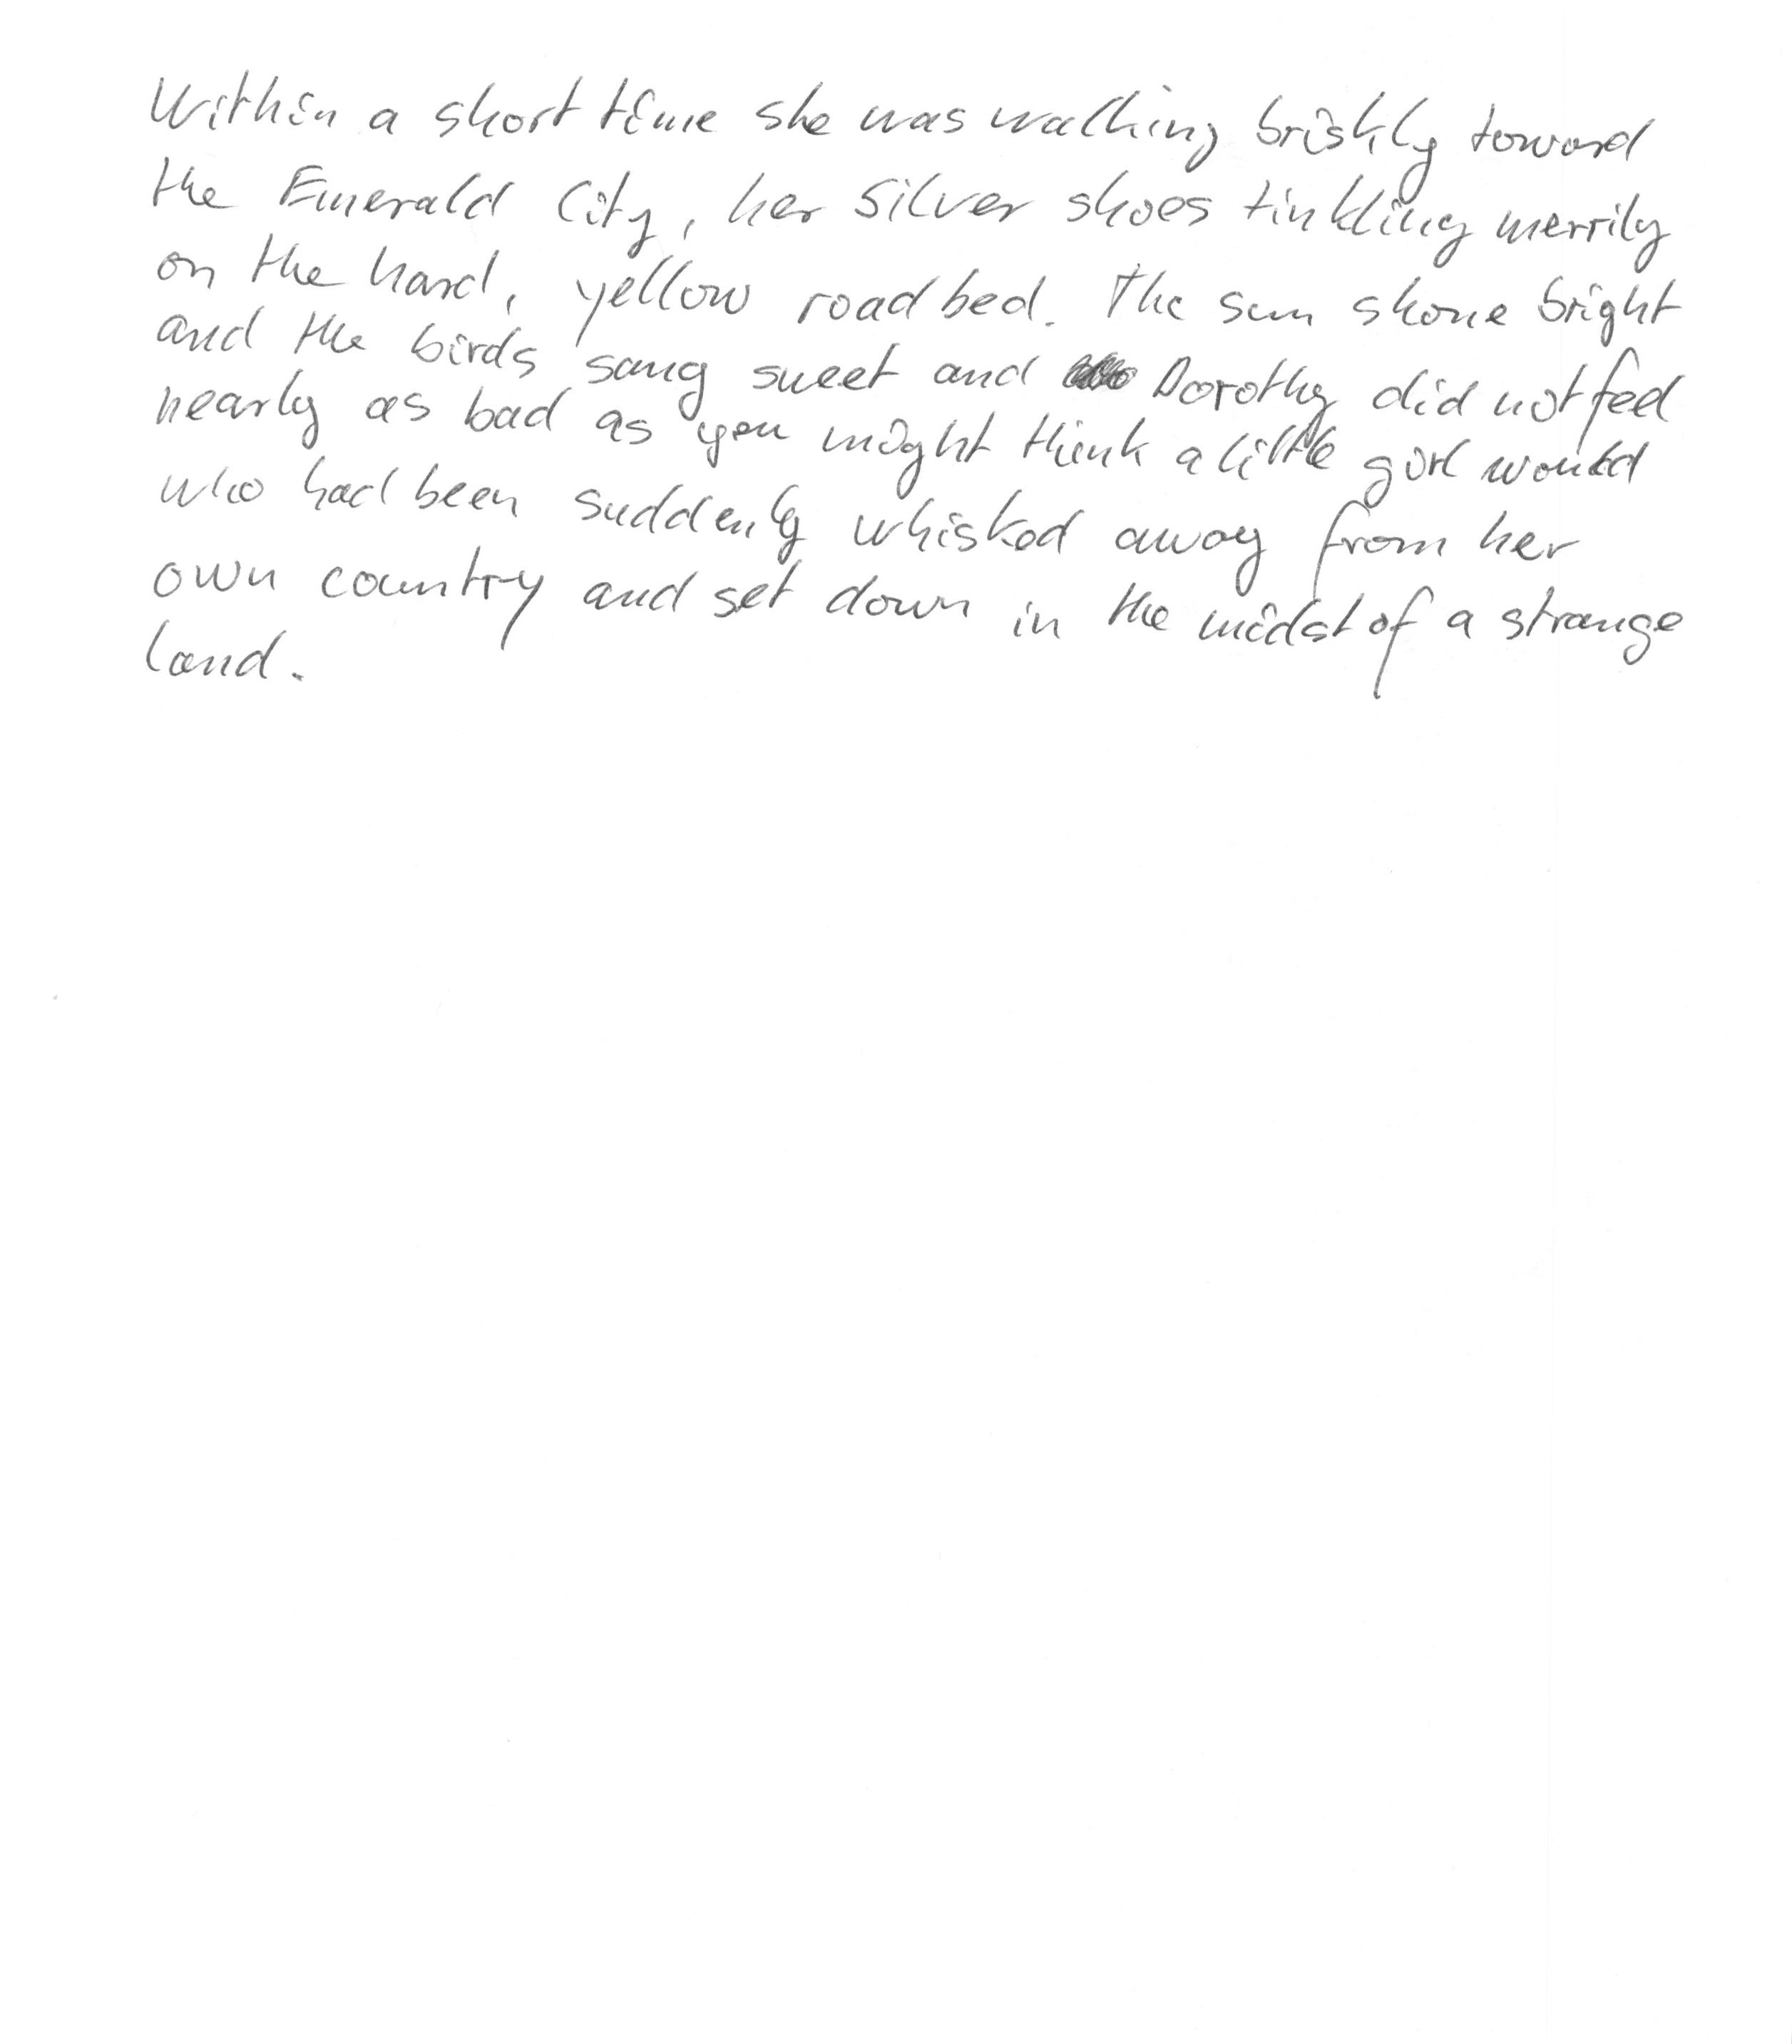 Within a short time she was walking briskly toward
the Emerald City, her Silver shoes tinkling merrily
on the hard, yellow roadbed. The sun shone bright
and the birds sang sweet and Dorothy did not feel
nearly as bad as you might think a little girl would
who had been suddenly whisked away from her
own country and set down in the midst of a strange
land.